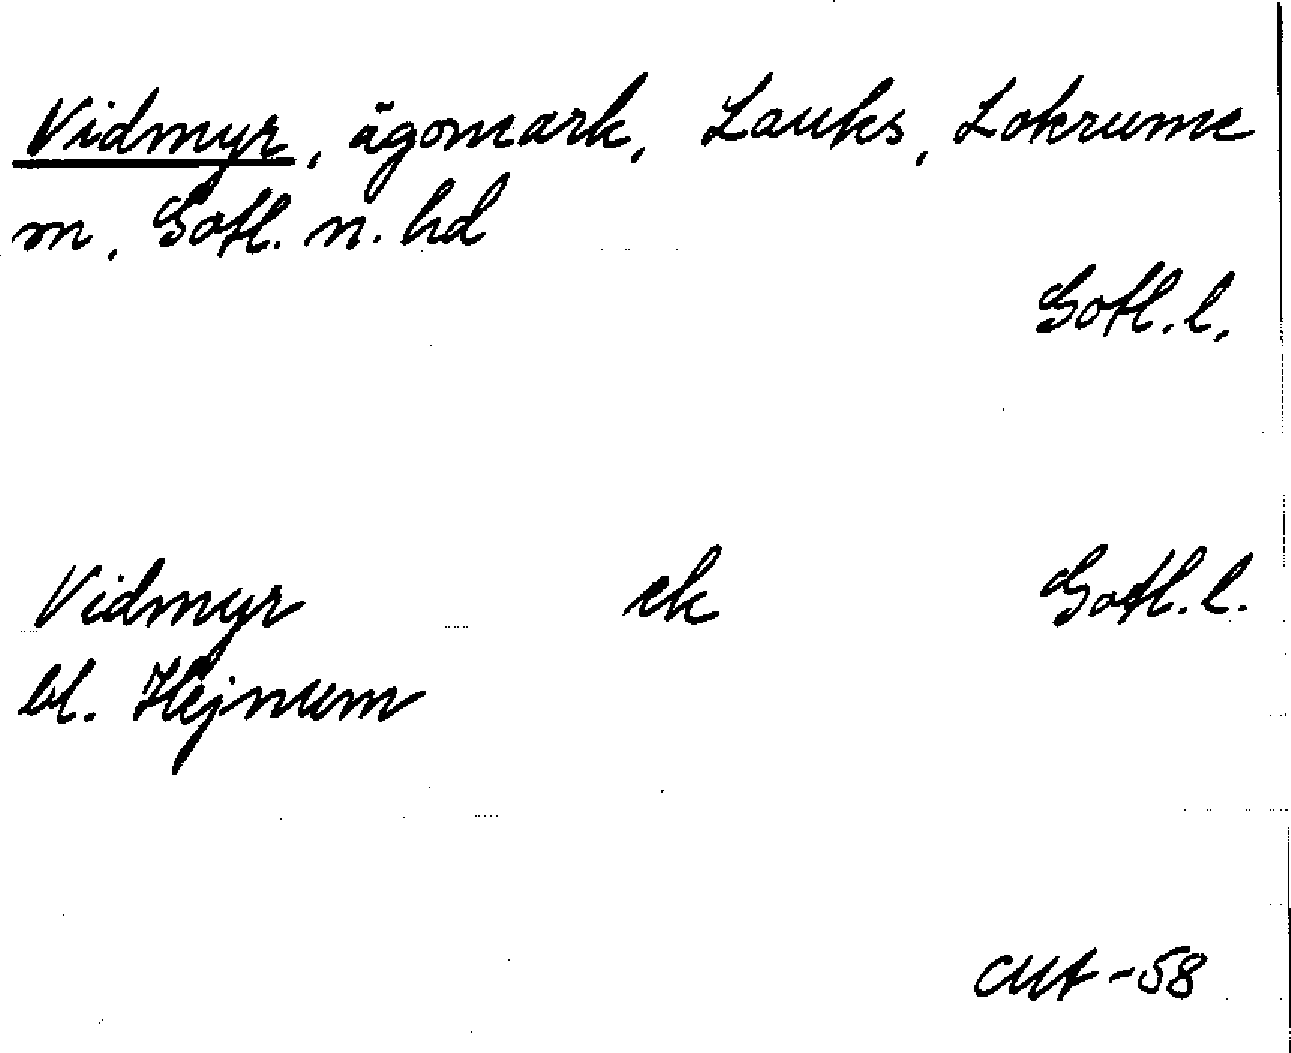 Vidmyr, ägomark, Lauks, Lokrume
m, Gotl. n. hd
Gotl. l.
Vidmyr ek Gotl. l.
bl. Hejnum
-58